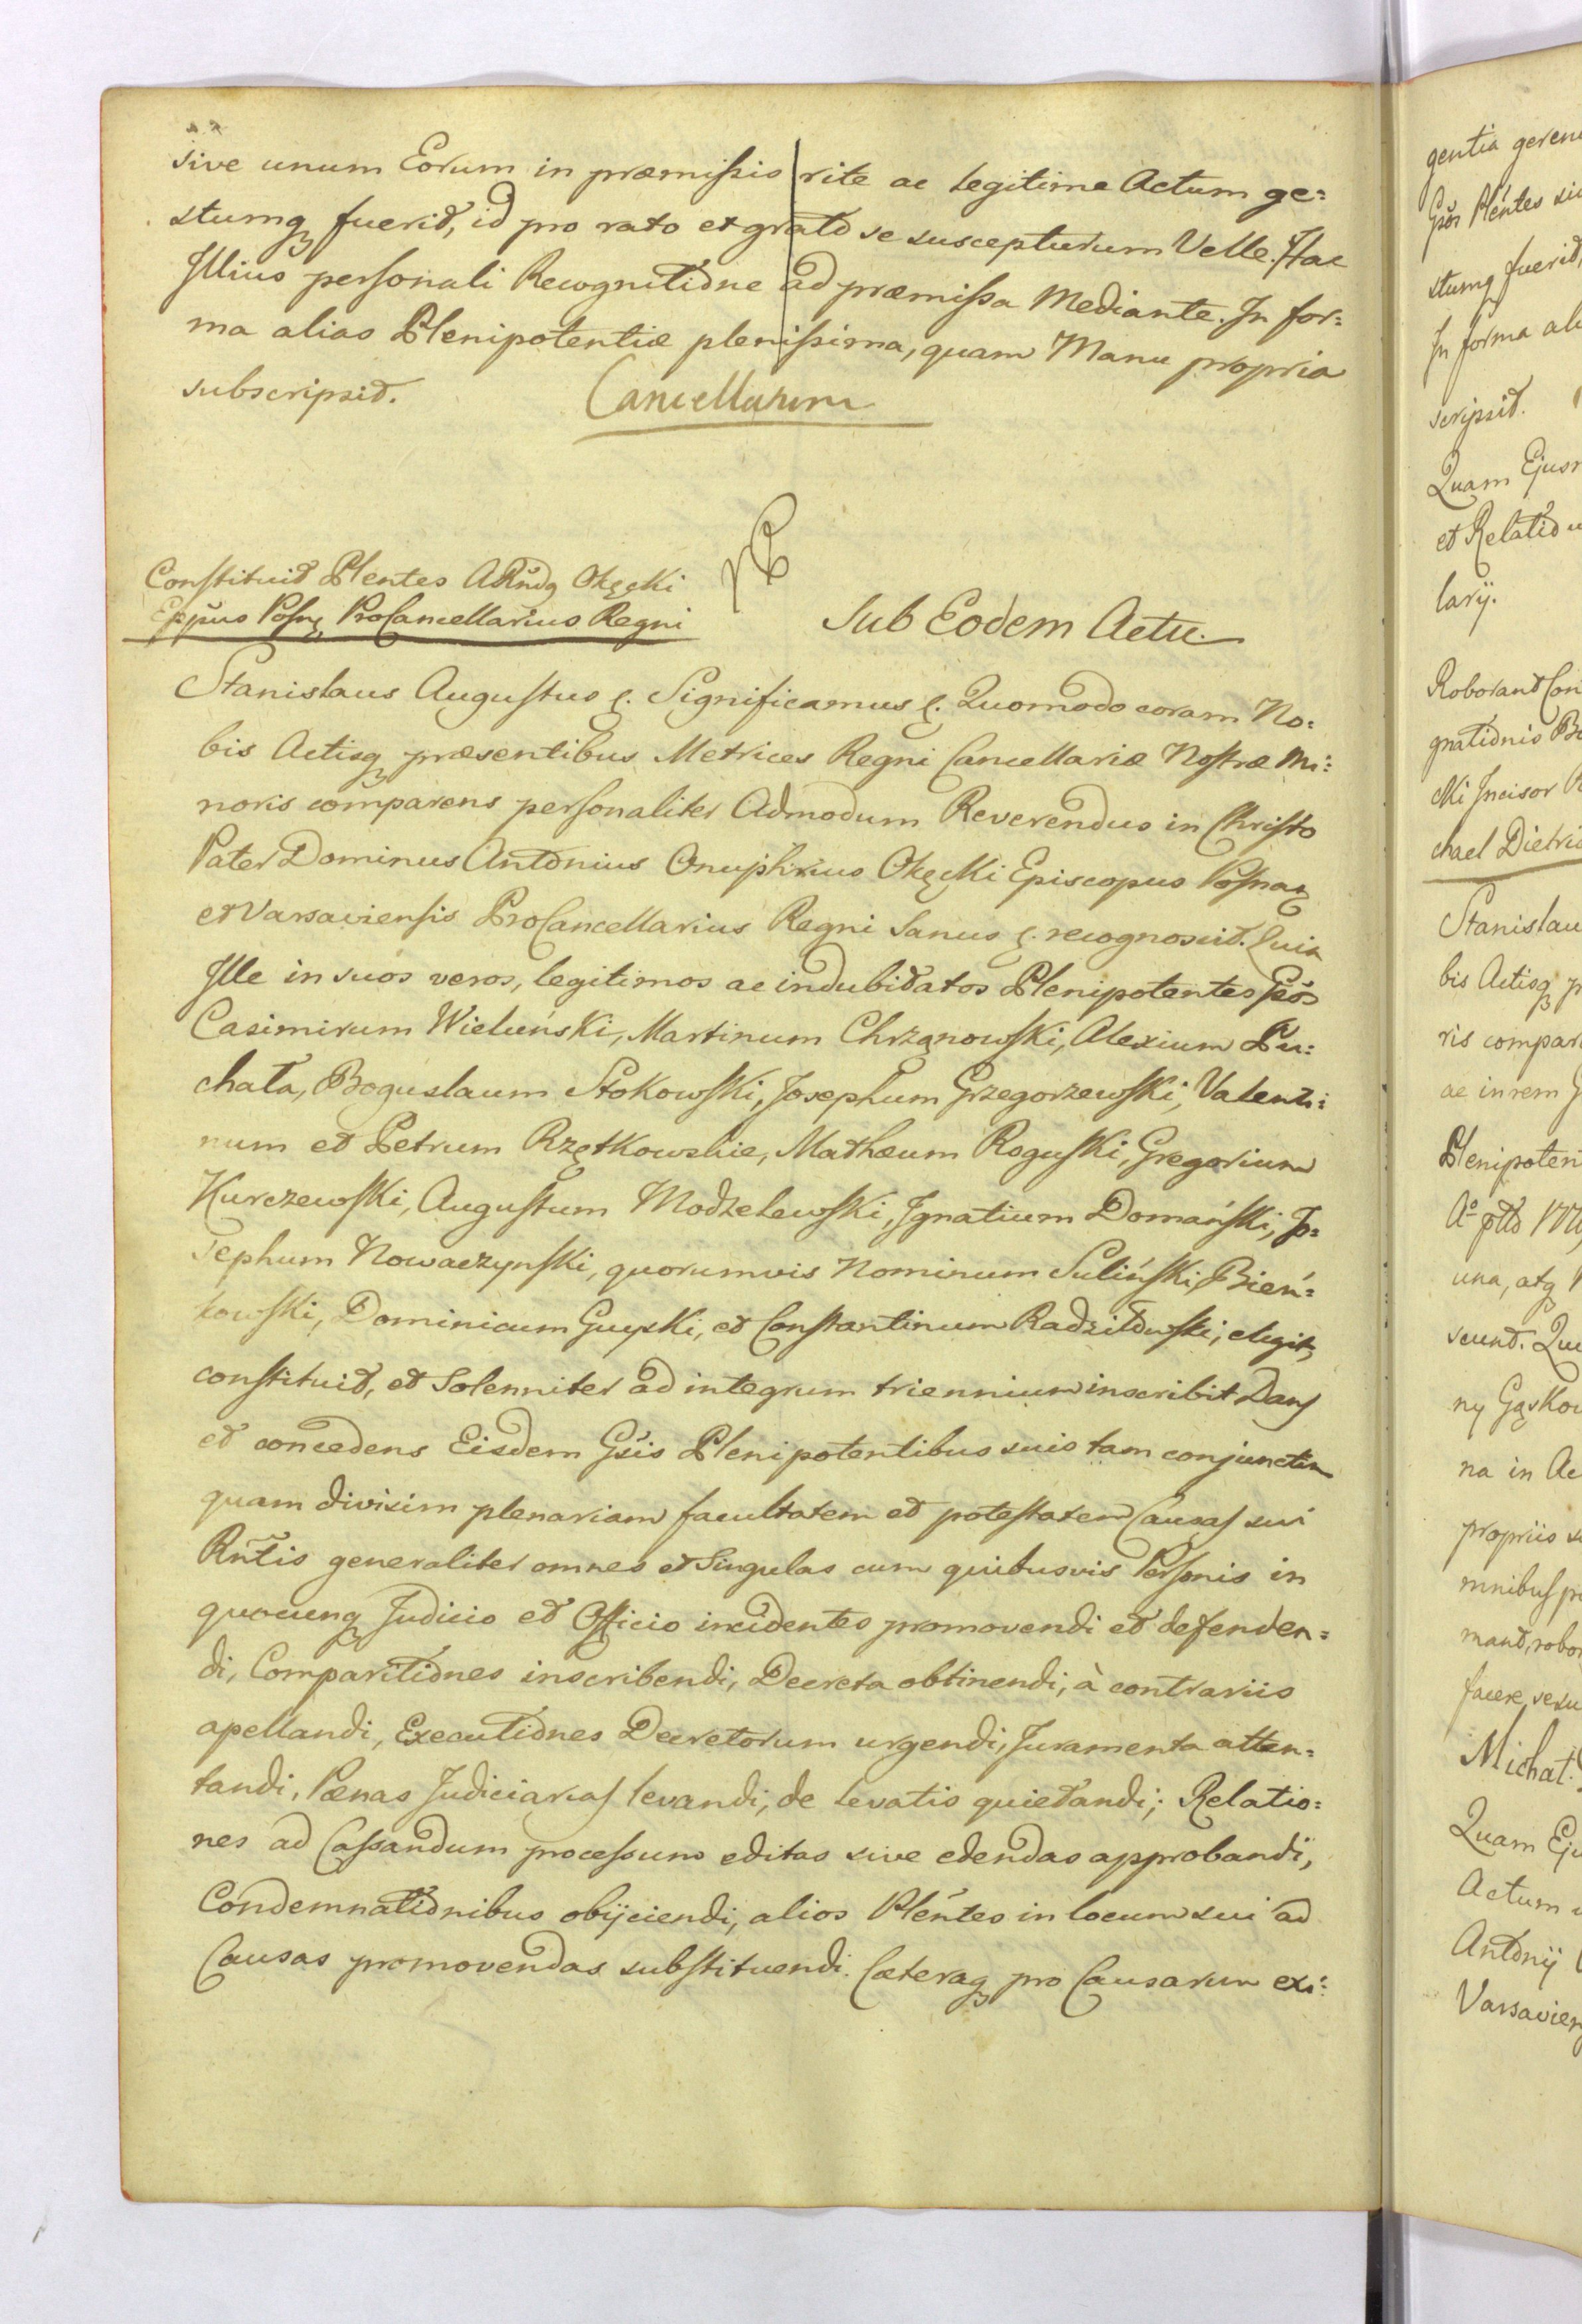 sive unum Eorum in præmissis rite ac legitime Actum ge:
stumq fuerit, id pro rato et grato se suscepturum Velle. Hac
Illius personali Recognitione ad præmissa Mediante. In for:
ma alias Plenipotentiæ plenissima, quam Manu propria
subscripsit.
Cancellatum
Constituit Plentes ARndq Okęcki
Eppus Posnę ProCancellarius Regni
Sub Eodem Actu.
Stanislaus Augustus &. Significamus &. Quomodo coram No:
bis Actisq præsentibus Metrices Regni Cancellariæ Nostræ Mi:
noris comparens personaliter Admodum Reverendus in Christo
Pater Dominus Antonius Onuphrius Okęcki Episcopus Posnaę
et Varsaviensis ProCancellarius Regni Sanus &. recognovit. Quia
Ille in suos veros, legitimos ac indubitatos Plenipotentes Gsos
Casimirum Wieluński, Martinum Chrząnowski, Alexium Pu:
chała, Boguslaum Stokowski, Josephum Grzegorzewski, Valenti:
num et Petrum Rzętkowskie, Mathæum Roguski, Gregorium
Kurczewski, Augustum Modzelewski, Ignatium Domański, Jo:
sephum Nowaczynski, quorumvis Nominum Suliński, Bień:
kowski, Dominicum Guyski, et Constantinum Radziłowski, elegit,
constituit, et Solenniter ad integrum triennium inscribit Dans
et concedens Eisdem Gsis Plenipotentibus suis tam conjunctim
quam divisim plenariam facultatem et potestatem Causas sui
Rntis generaliter omnes et Singulas cum quibusvis Personis in
quocunq Judicio et Officio incidentes promovendi et defenden:
di, Comparitiones inscribendi, Decreta obtinendi, à contrariis
apellandi, Executiones Decretorum urgendi, Juramenta atten:
tandi, Pœnas Judiciarias levandi, de levatis quietandi; Relatio:
nes ad Cassandum processum editas sive edendas approbandi,
Condemnationibus obijciendi, alios Plentes in locum sui ad
Causas promovendas substituendi. Cæteraq pro Causarum exi:
gentia geren
Gsos Plentes sic
stumq fuerit,
In forma ali
scripsit.
Quam Ejusm
et Relatio
larij.
Roborant Con
gnationis
cki Incisor
chael Dietric
Stanislau
bis Actisq p
ris compar
ac in rem
Plenipoten
una, atq
scunt. Qu
ny Gąskow
na in Ac
propriis s
mnibus p
mant, robor
facere, sesu
Michał
Quam Eju
Actum
Antonij
Varsavien